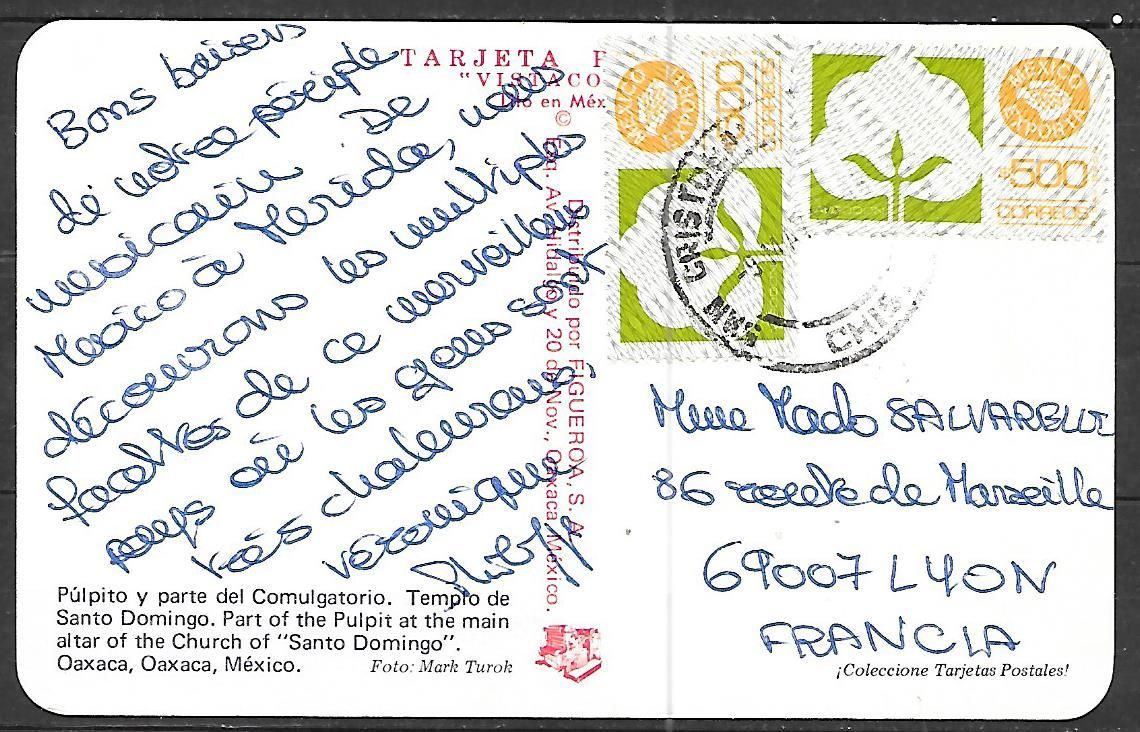 Bons baisers
de notre périple
mexicain De
Mexico à Merida, nous
découvrons les multiples
facettes de ce merveilleux
pays où les gens sont
très chaleureux
Véronique
TARJETA P
"VISTACO
en Méx
©
Distribuido por FIGUEROA, S. A.
Esq. Av. Hidalgo y 20 de Nov., Oaxaca, México.
Púlpito y parte del Comulgatorio. Templo de
Santo Domingo. Part of the Pulpit at the main
altar of the Church of "Santo Domingo".
Oaxaca, Oaxaca, México. Foto: Mark Turok
500
CORREOS
MEXICO
EXPORTA
$500
CORREOS
CRISTO
CHIS.
Mme Mado SALVARELLI
86 route de Marseille
69007 LYON
FRANCIA
¡Coleccione Tarjetas Postales!